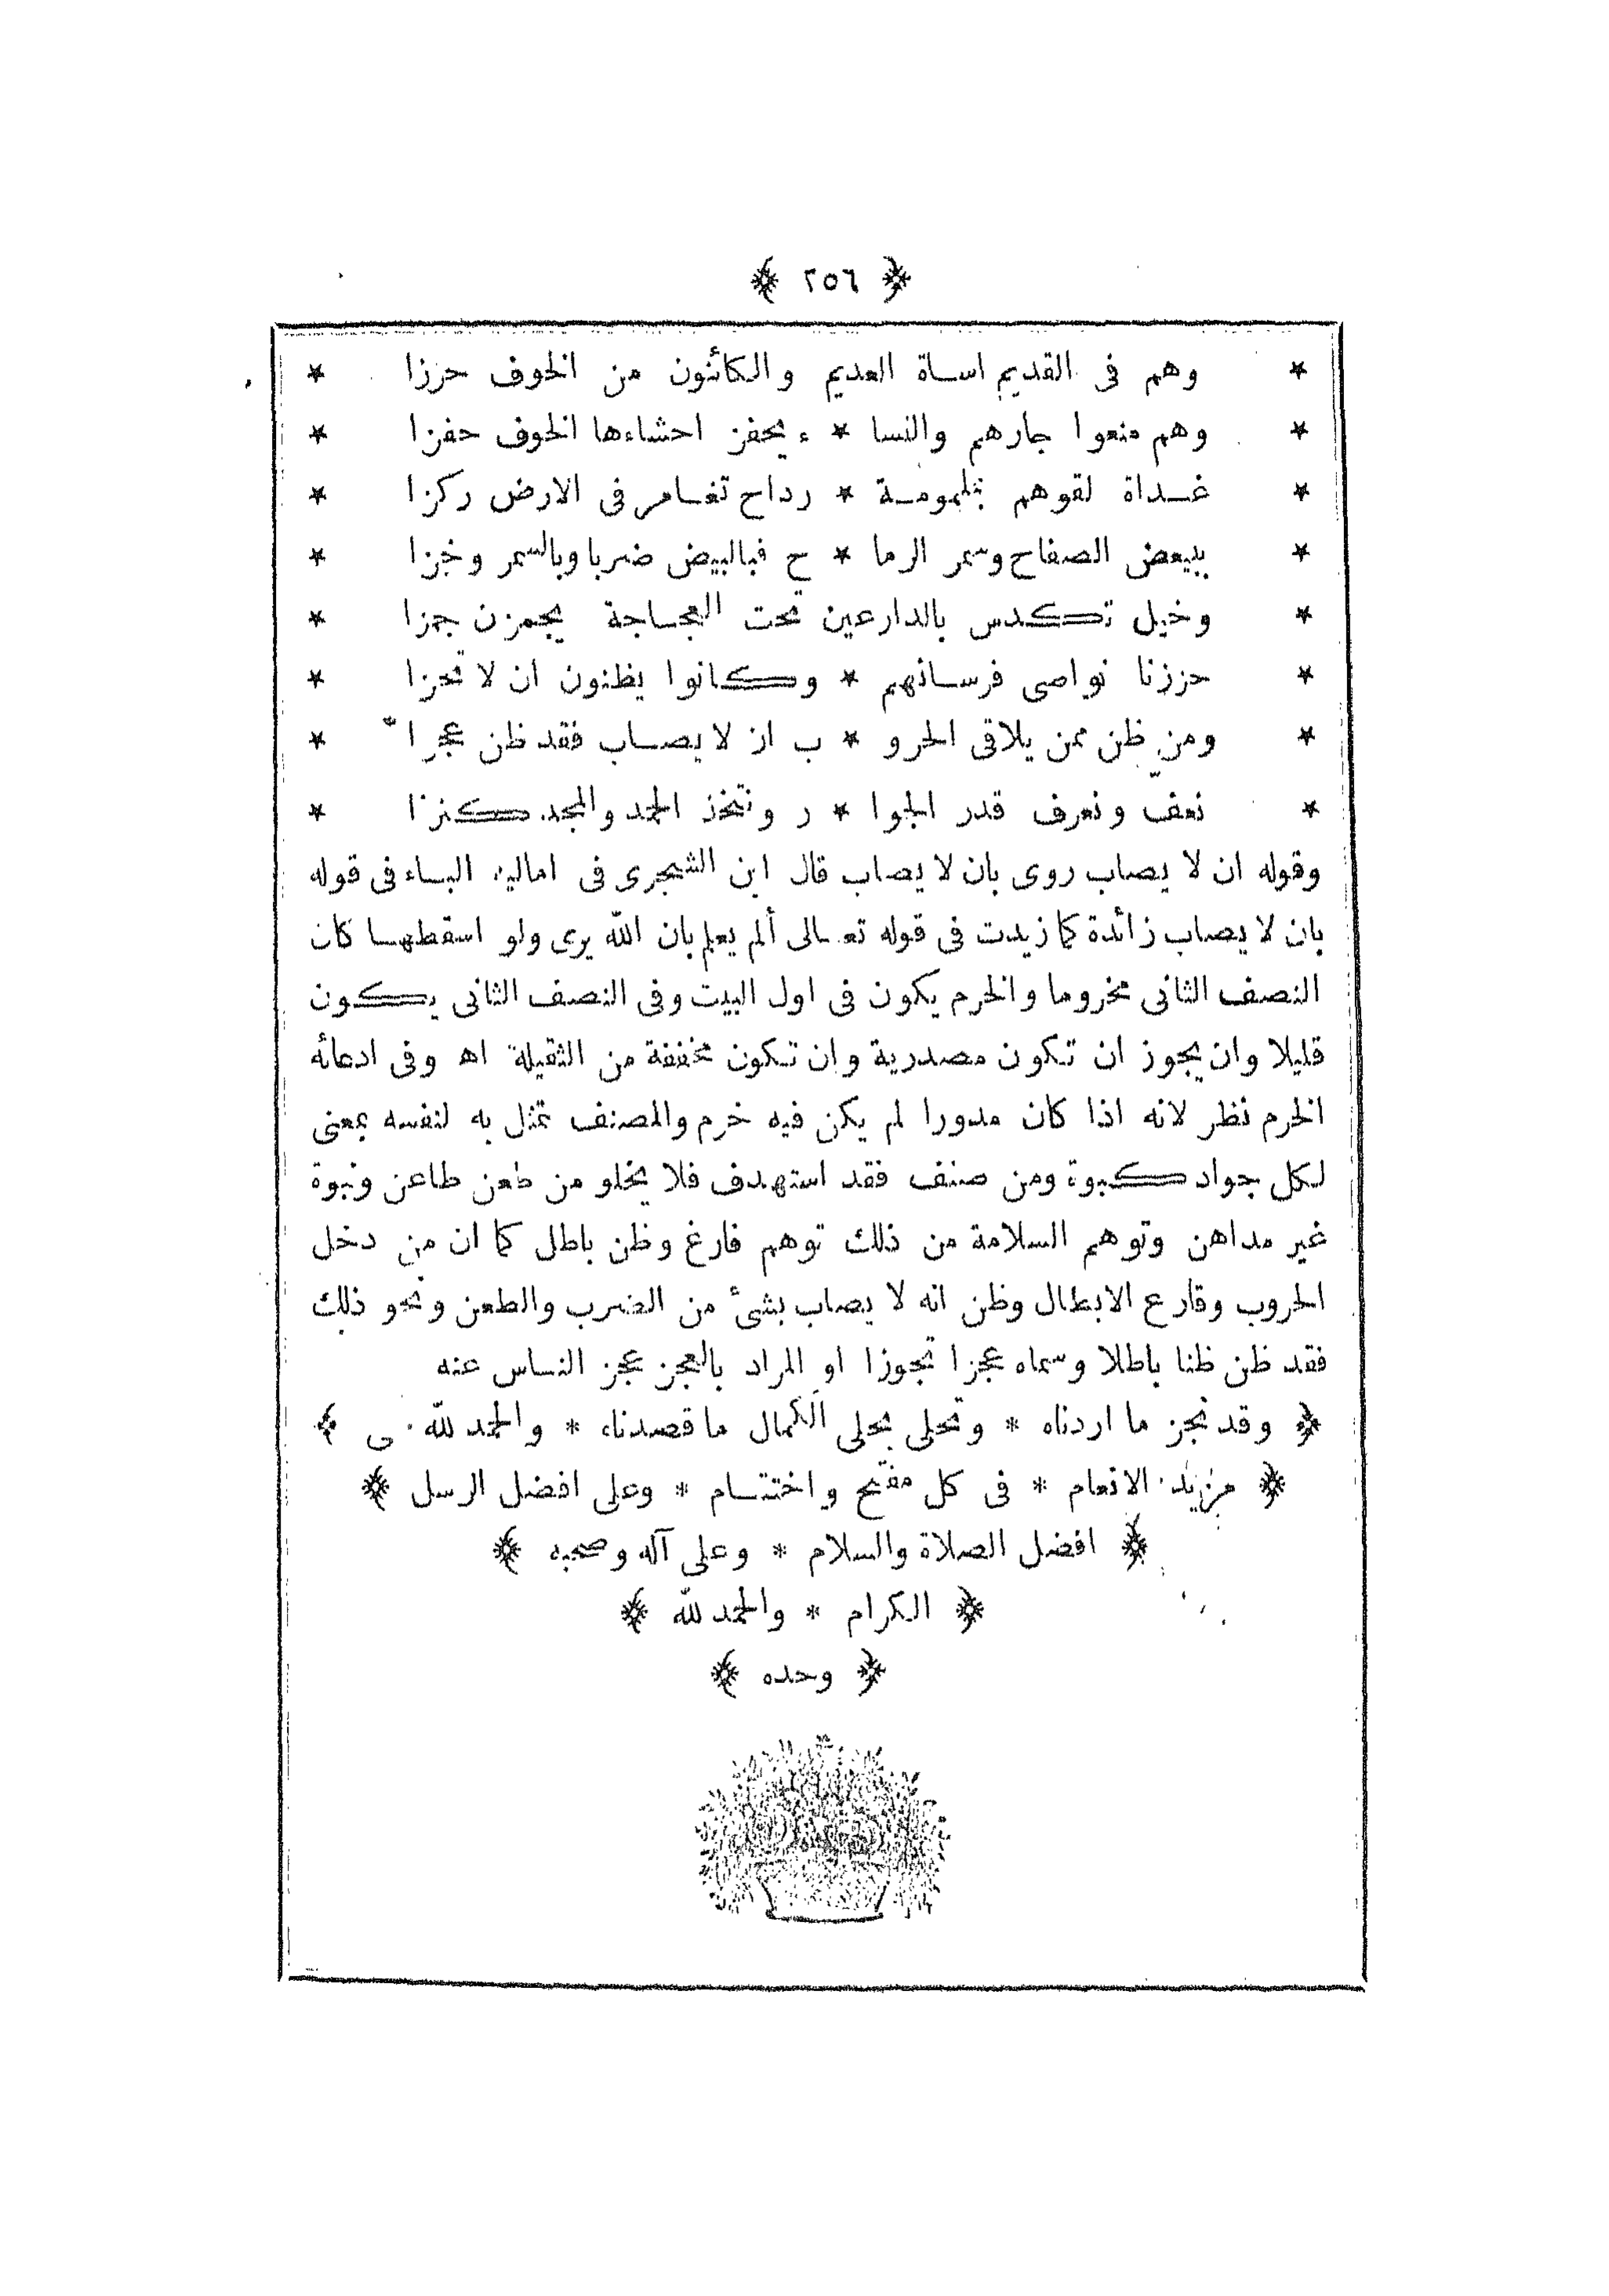 ﴿ ٢٥٦ ﴾
* وهم فى القديم اساة العديم والكائنون من الخوف حرزا *
* وهم منعوا جارهم والنسا * ء يحفز احشاءها الخوف حفزا *
* غداة لقوهم بململومة * رداح تغامر فى الارض ركزا *
* ببيعض الصفاح وسمر الرما * ح فبالبيض ضربا وبالسمر وخزا *
* وخيل تكدس بالدارعين تحت العجاجة يجمزن جمزا *
* حززنا نواصى فرسانهم * وكانوا يظنون ان لا تحزا *
* ومن ظن ممن يلاقى الحرو * ب ان لا يصاب فقد ظن عجزا *
* نعف ونعرف قدر الجوا * ر ونتخذ الحمد والمجد كنزا *
وقوله ان لا يصاب روى بان لا يصاب قال ابن الشجرى فى اماليه الباء فى قوله
بان لا يصاب زائدة كما زيدت فى قوله تعالى ألم يعلم بان الله يرى ولو اسقطها كان
النصف الثانى مخروما والخرم يكون فى اول البيت وفى النصف الثانى يكون
قليلا وان يجوز ان تكون مصدرية وان تكون مخففة من الثقيلة اه وفى ادعائه
الخرم نظر لانه اذا كان مدورا لم يكن فيه خرم والمصنف تمثل به لنفسه بمعنى
لكل جواد كبوة ومن صنف فقد استهدف فلا يخلو من طعن طاعن ونبوة
غير مداهن وتوهم السلامة من ذلك توهم فارغ وظن باطل كما ان من دخل
الحروب وقارع الابطال وظن انه لا يصاب بشئ من الضرب والطعن ونحو ذلك
فقد ظن ظنا باطلا وسماه عجزا تجوزا او المراد بالعجز عجز الناس عنه
﴿ وقد نجز ما اردناه * وتحلى بحلى الكمال ما قصدناه * والحمد لله ﴾
﴿ مزيد الانعام * فى كل مفتتح واختتام * وعلى افضل الرسل ﴾
﴿ افضل الصلاة والسلام * وعلى آله وصحبه ﴾
﴿ الكرام * والحمد لله ﴾
﴿ وحده ﴾